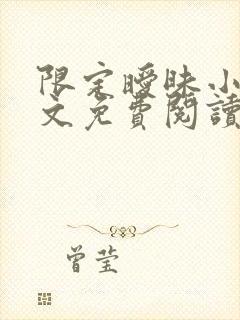 限定曖昧小
文免費閱讀
曾莹